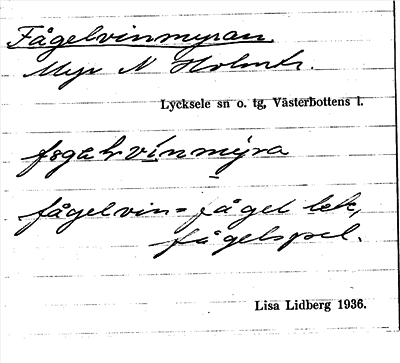 Fågelvinmyran.
Myr N Holmtr.
Lycksele sn o. tg, Västerbottens l.
vinmyra
fågelvin = fågel lek,
fågelspel.
Lisa Lidberg 1936.